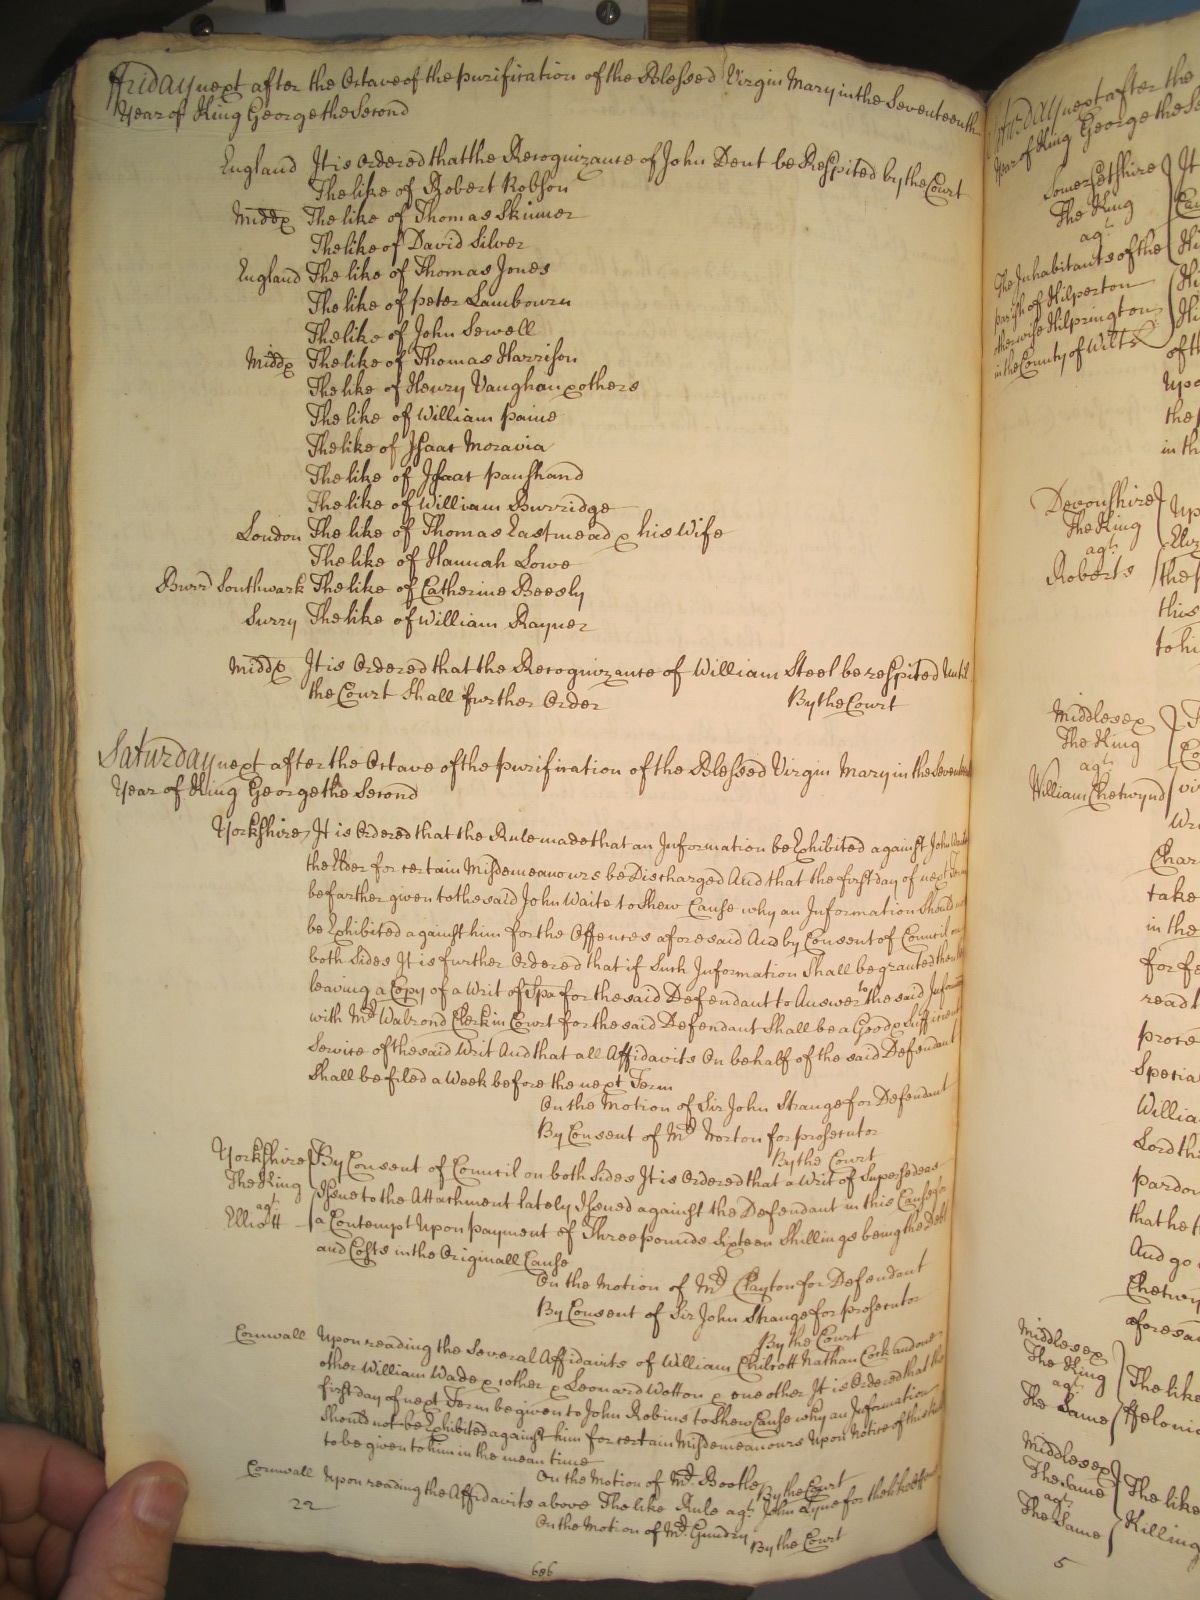 Friday next after the Octave of the purification of the Blessed Virgin Mary in the Seventeenth
Year of King George the Second
England It is Ordered that the Recognizance of John Dent be Respited by the Court
The like of Robert Robson
Middx The like of Thomas Skinner
The like of David Silver
England The like of Thomas Jones
The like of peter Lambourn
The like of John Sewell
Middx The like of Thomas Harrison
The like of Henry Vaughan & others
The like of William paine
The like of Isaac Moravia
The like of Isaac paushand
The like of William Burridge
London The like of Thomas Eastmead & his Wife
The like of Hannah Lowe
Burr Southwark The like of Catherine Beesly
Surry The like of William Rayner
Middx It is Ordered that the Recognizance of William Steel be respited Until
the Court Shall further Order By the Court
Saturday next after the Octave of the purification of the Blessed Virgin Mary in the Seventeenth
Year of King George the Second
Yorkshire It is Ordered that the Rule made that an Information be Exhibited against John Waite
the Elder for certain Misdemeanours be Discharged And that the first day of next Term
be farther given to the said John Waite to Shew Cause why an Information Should not
be Exhibited against him for the Offences aforesaid And by Consent of Council on
both Sides It is further Ordered that if Such Information Shall be granted then the
leaving a Copy of a Writ of Spa for the said Defendant to Answer to the said Information
with Mr Walrond Clerk in Court for the said Defendant Shall be a Good & Sufficient
Service of the said Writ And that all Affidavits On behalf of the said Defendant
Shall be filed a Week before the next Term
On the Motion of Sir John Strange for Defendant
By Consent of Mr Norton for prosecutor
By the Court
Yorkshire By Consent of Council on both Sides It is Ordered that a Writ of Supersedeas
The King Issue to the Attachment lately Issued against the Defendant in this Cause for
agt
Elliott a Contempt Upon payment of Three pounds Sixteen Shillings being the Debt
and Costs in the Originall Cause
On the Motion of Mr Clayton for Defendant
By Consent of Sir John Strange for prosecutor
By the Court
Cornwall Upon reading the Several Affidavits of William Chilcott Nathan Cock and one
other William Wade & 1 other & Leonard Wotton & one other It is Ordered that the
first day of next Term be given to John Robins to Shew Cause why an Information
Should not be Exhibited against him for certain Misdemeanours Upon Notice of this Rule
to be given to him in the mean time
On the Motion of Mr Bootle By the Court
Cornwall Upon reading the Affidavits above The like Rule agt John Lyne for the like
On the Motion of Mr Gundry By the Court
22
686
next after the
Year of King George the
Somersetshire It
The King
agt
The Inhabitants of the
parish of Hilperton
otherwise Hilprington
in the County of Wilts
of th
Upo
the
in th
Devonshire Up
The King
agt
Roberts the
this
to hi
Middlesex
The King
agt
William Chetwynd
Char
take
in the
for fe
read
prose
Specia
Willia
Lord th
pardon
that he
And go
Chetwy
aforesa
Middlesex
The King The like
agt
The Same ffeloni
Middlesex
The Same The like
agt
The Same Killing
5